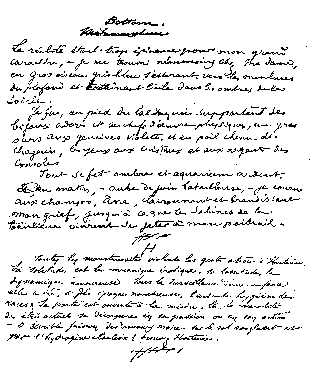 Bottom.
La réalité étant trop épineuse pour mon grand
caractère, – je me trouvai néanmoins chez Madame,
en gros oiseau gris bleu s'essorant vers les moulures
du plafond et traînant l'aile dans les ombres de la
soirée.
Je fus, au pied du baldaquin supportant ses
bijoux adorés et ses chefs d'œuvre physiques, un gros
ours aux gencives violettes et au poil chenu de
chagrin, les yeux aux cristaux et aux argents des
consoles.
Tout se fit ombre et aquarium ardent.
Au matin, – aube de juin batailleuse, – je courus
aux champs, âne, claironnant et brandissant
mon grief, jusqu'à ce que les Sabines de la
banlieue vinrent se jeter à mon poitrail.
H
Toutes les monstruosités violent les gestes atroces d'Hortense.
Sa solitude est la mécanique érotique, sa lassitude, la
dynamique amoureuse. Sous la surveillance d'une enfance
elle a été, à des époques nombreuses, l'ardente hygiène des
races. Sa porte est ouverte à la misère. Là, la moralité
des êtres actuels se décorpore en sa passion ou en son action
– O terrible frisson des amours novices sur le sol sanglant et
par l'hydrogène clarteux ! trouvez Hortense.